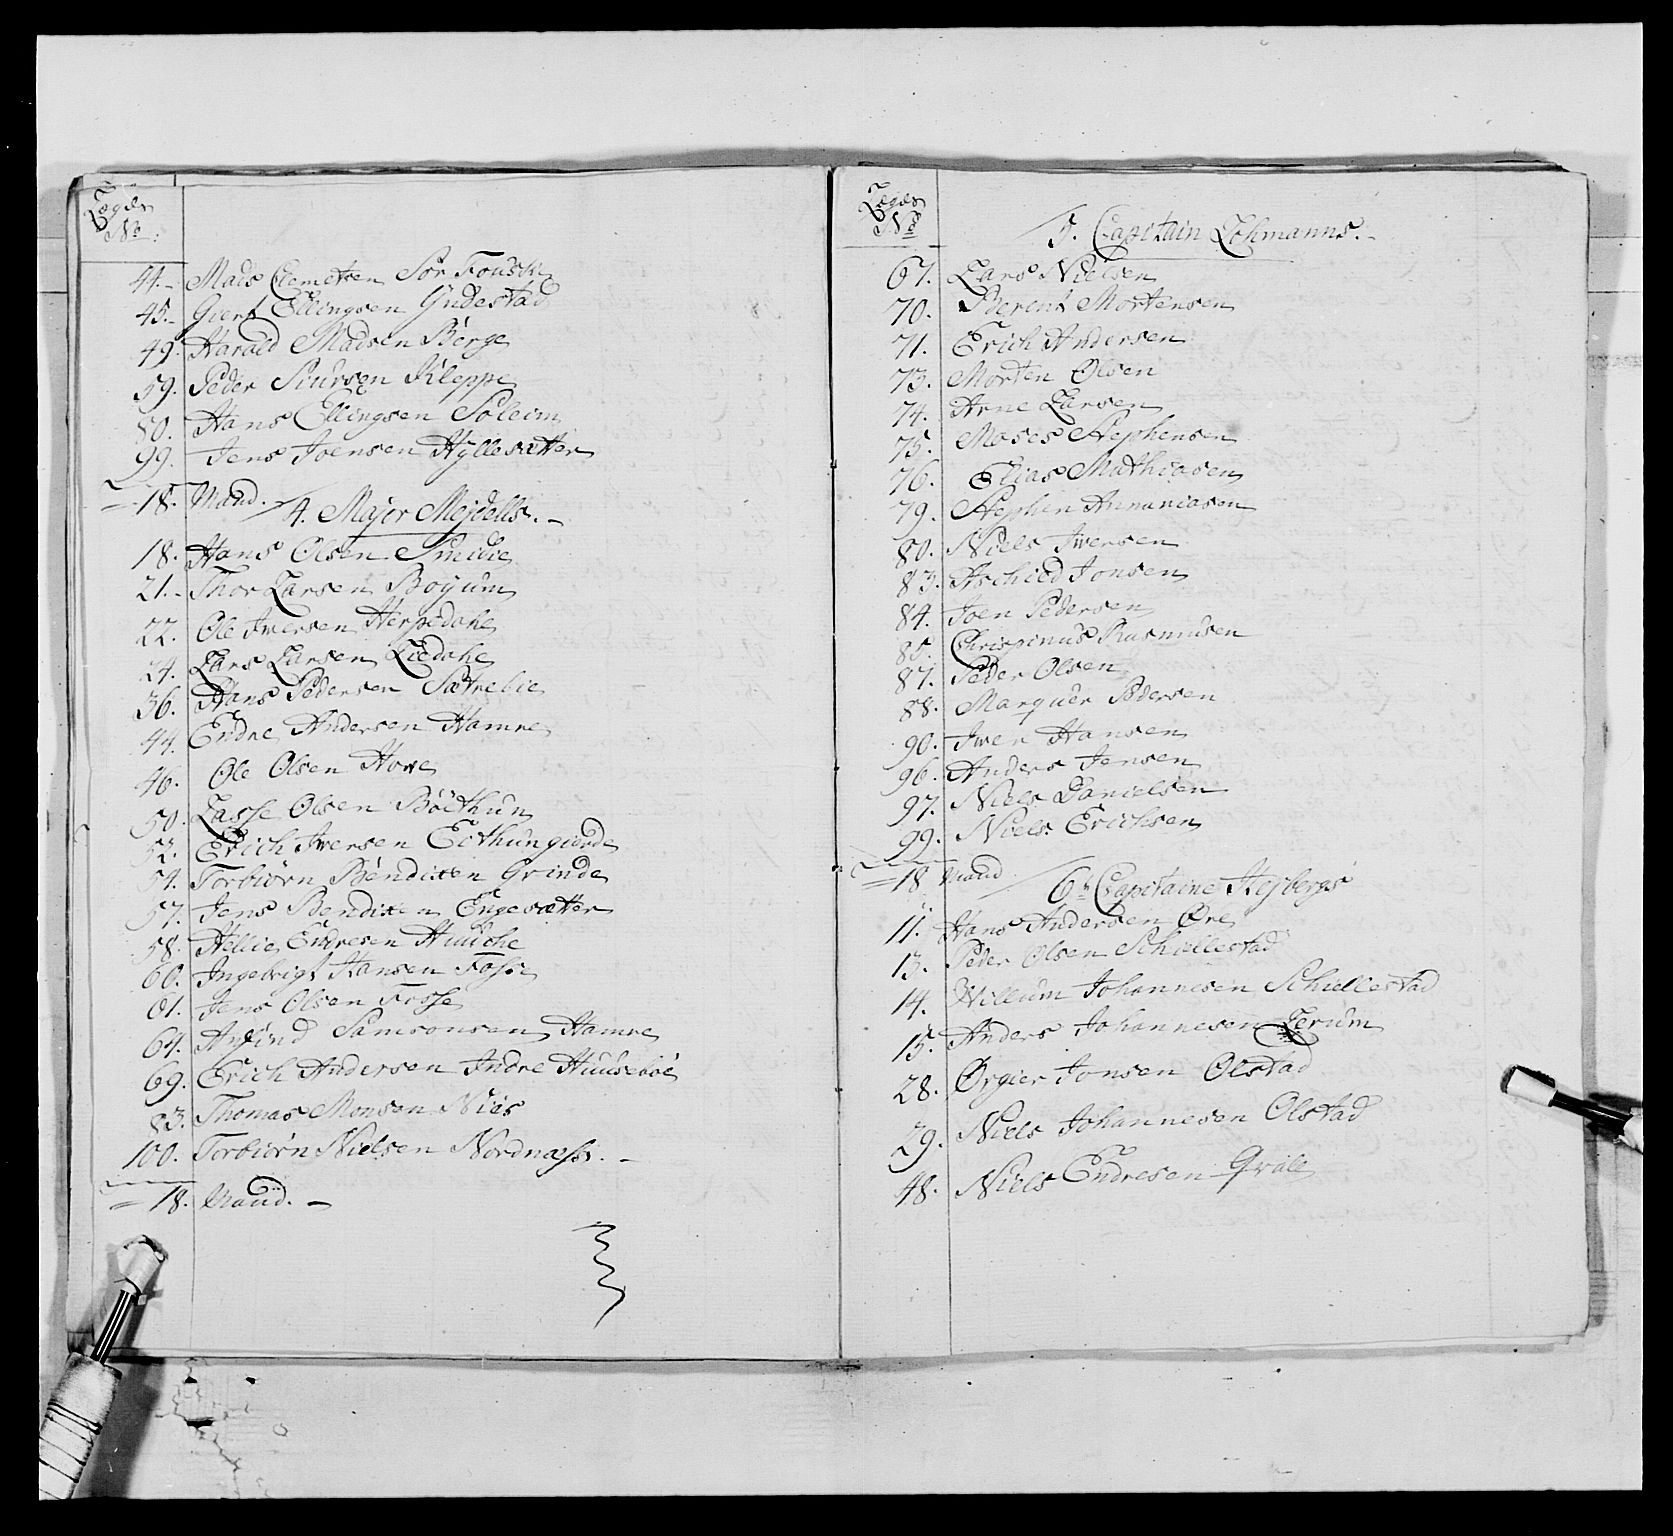 Lægds
No:
44. Mads Clemetsen Sör Fousk
45. Giert Ellingsen Yndestad
49. Harald Madsen Börge
59. Peder Siursen Kleppe
80. Hans Ellingsen Soleim
99. Jens Joensen Hyllesætter
=18. Mand.
4. Major Mejdells.
18. Hans Olsen Smidie
21. Thor Larsen Boyum
22. Ole Iwersen Herpedahe
24. Lars Larsen Liedahe
36. Hans Pedersen Sætrebie
44. Endre Andersen Hamre
46. Ole Olsen Howe
50. Lasse Olsen Böethun
52. Erich Iwersen Eithungierde
54. Torbiörn Bendixen Grinde
57. Jens Bendixen Engesætter
58. Hellie Endresen Huuche
60. Ingebrigt Hansen Fosse
61. Jens Olsen Fosse
64. Aylind Samsonsen Hamre
69. Erich Andersen Indre Huuseböe
83. Thomas Monsen Nies
100. Torbiörn Nielsen Nordnæss.
=18. Mand.
Lægds
No
5. Capitain Lohmanns.
67. Lars Nielsen
70. Berent Mortensen
71. Erich Andersen
73. Morten Olsen
74. Arne Larsen
75. Moses Stephensen
76. Elias Mathiasen
79. Stephen Annaniasen
80. Niels Iwersen
83. Aschied Jonsen
84. Joen Pedersen
85. Chrispinus Rasmusen
87. Peder Olsen
88. Marquer Pedersen
90. Iwer Hansen
96. Anders Jensen
97. Niels Danielsen
99. Niels Erichsen
=18 Mand
6. Capitaine Kejbergs
11. Hans Andersen Öre
13. Peder Olsen Schiellestad
14. Willum Johannesen Schiellestad
15. Anders Johannesen Lerum
28. Ørgier Jonsen Olstad
29. Niels Johannesen Olstad
48. Niels Endresen Qvale